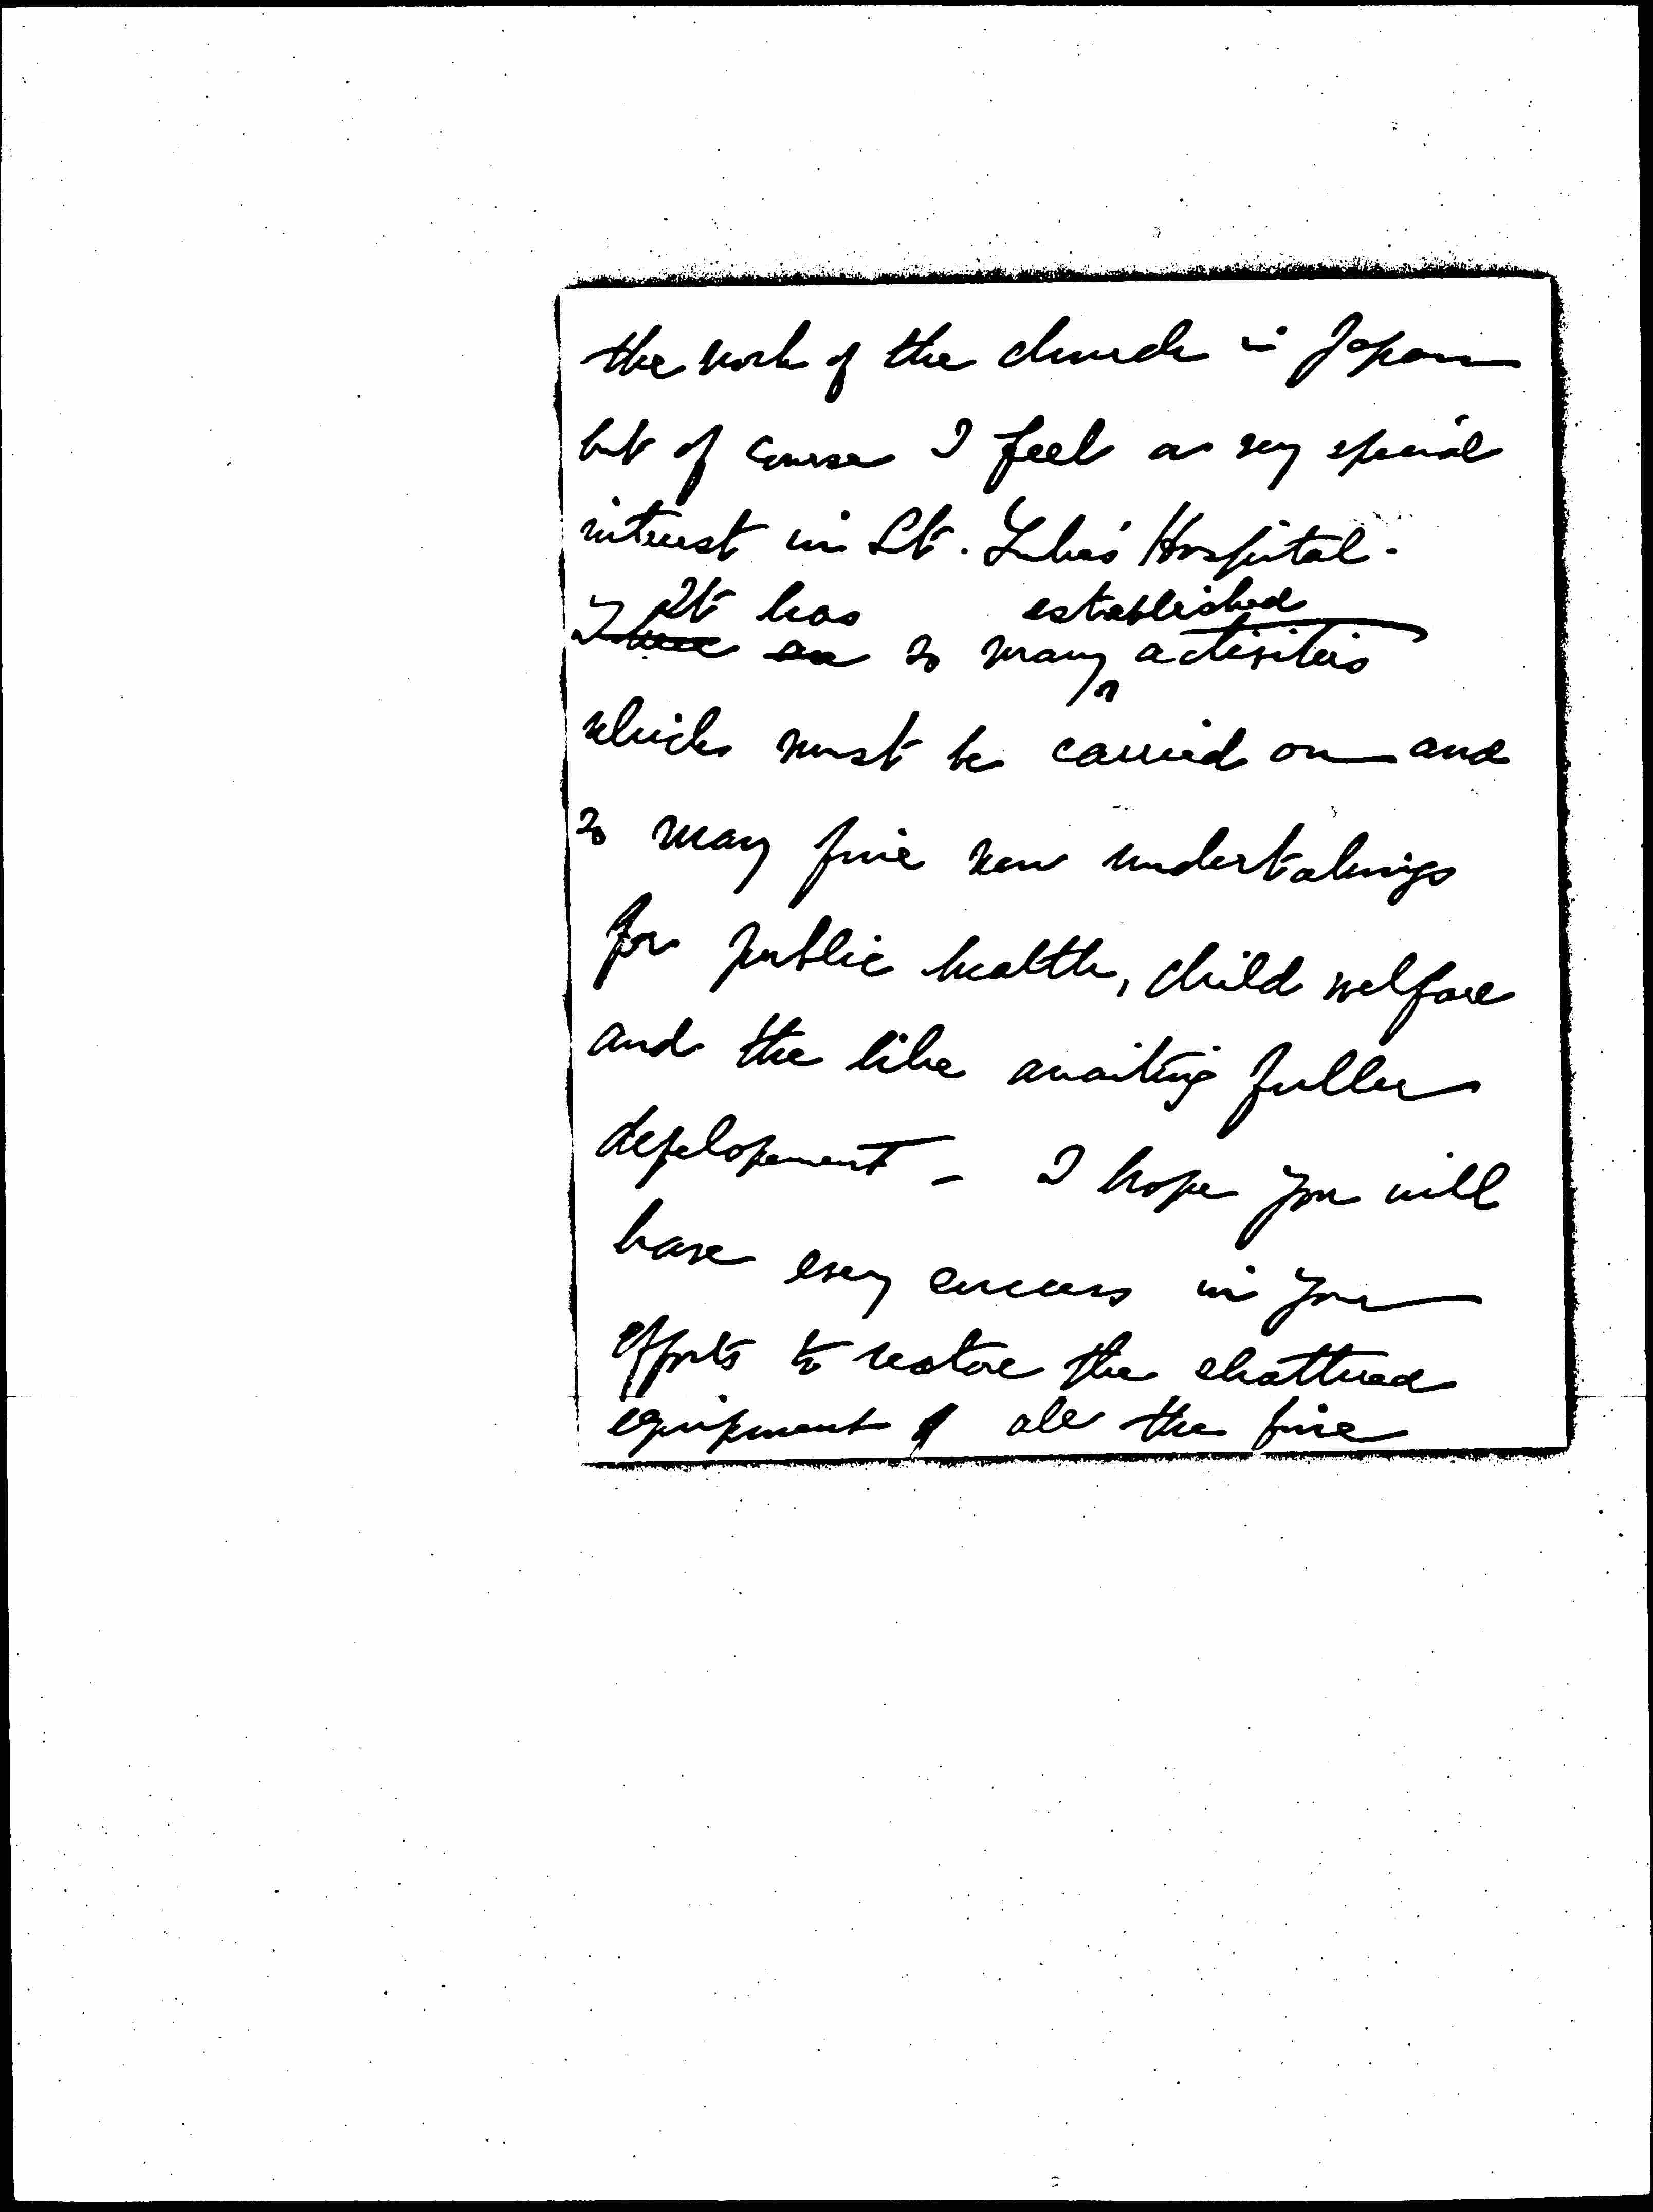 the work of the church in Japan
but of course I feel a very special
interest in St. Luke's Hospital.
It has established
There are so many activities
which must be carried on and
so many fine new undertakings
for public health, child welfare
and the like awaiting fuller
development - I hope you will
have every success in your
efforts to restore the shattered
equipment of all the fine